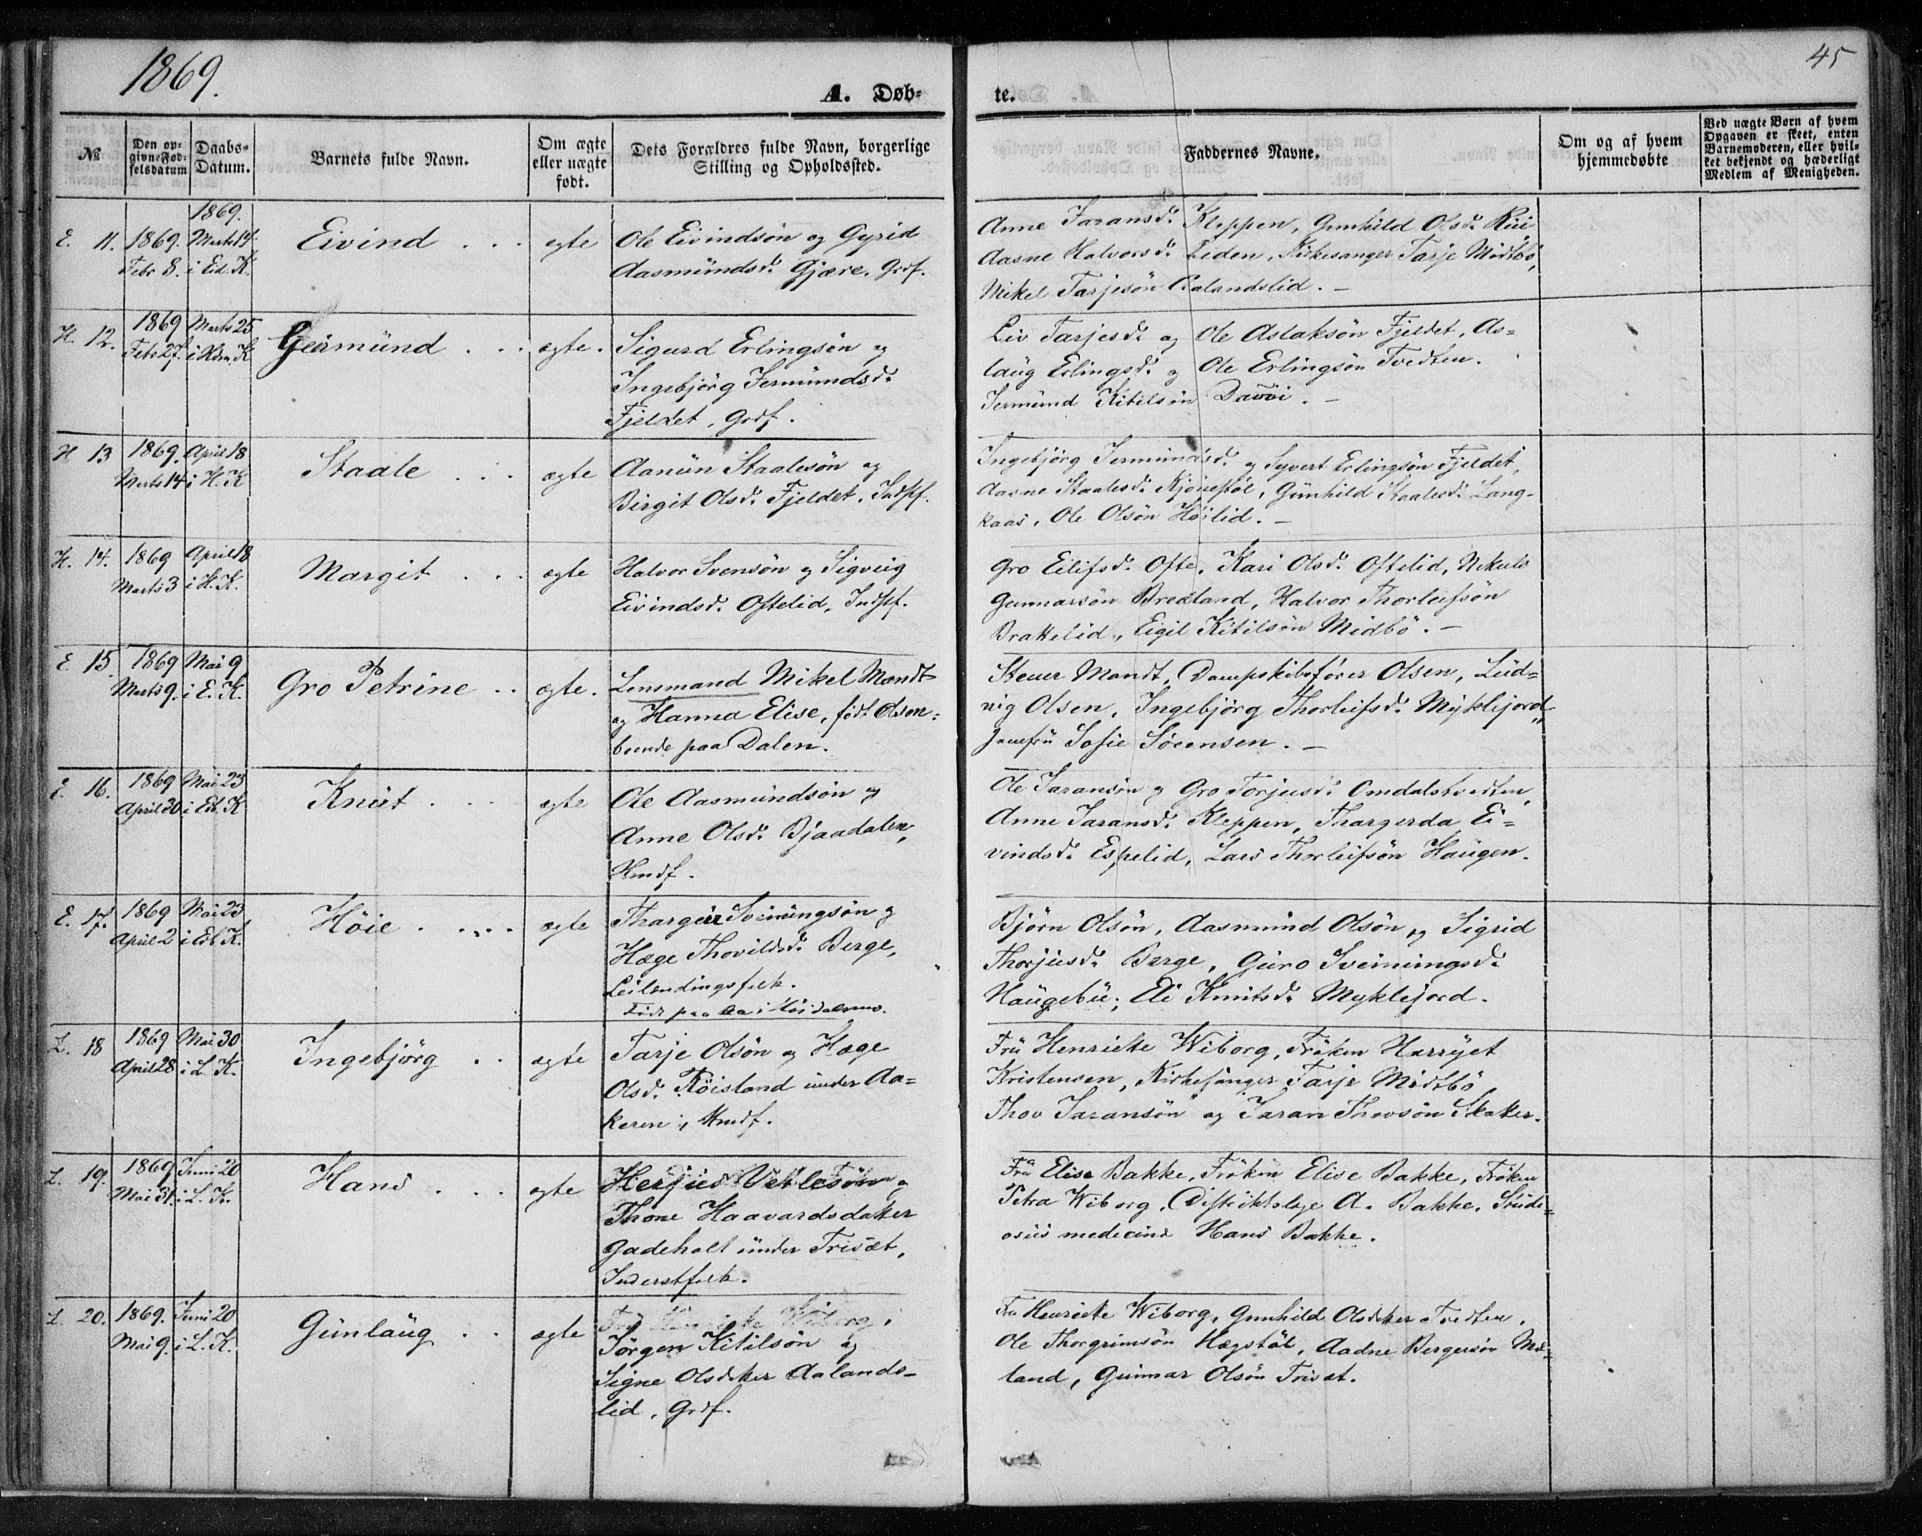 1869.
45
A. Døb-
te.
№
Den op-
givne Fød-
selsdatum
Daabs-
Datum.
Barnets fulde Navn.
Om ægte
eller uægte
født.
Dets Forældres fulde Navn, borgerlige
Stilling og Opholdssted.
Faddernes Navne.
Om og af hvem
hjemmedøbte
Ved uægte Børn af hvem
Opgaven er skeet, enten
Barnemoderen, eller hvil-
ket bekjendt og hæderligt
Medlem af Menigheden.
E. 11.
1869.
Febr 8.
1869.
Marts 14
i Eid. K.
Eivind
egte
Ole Eivindsön og Gyrid
Aasmundsd. Gjære, Grdf.
Anne Jaransd. Kleppen, Gunhild Olsd.
Aasne Halvorsd. Liden, Kirkesanger Tarje Midtbö,
Mikel Tarjesön Aalandslid. —
H. 12.
1869
Febr 27.
Marts 25
i Hdm. K
Geirmund
ægte.
Sigurd Erlingsön og
Ingebjörg Jermundsd.
Fjeldet, Grdf.
Liv Tarjesd. og Ole Aslaksön Fjeldet, As-
laug Erlingsd. og Ole Erlingsön Tvedten.
Jermund Kitilsön —
H 13
1869.
Marts 14
April 18
i H. K
Staale
ægte
Aanün Staalesön og
Birgit Olsd. Fjeldet, Indspf.
Ingebjörg Jermundsd. og Syvert Erlingsön Fjeldet,
Aasne Staalesd. Gunhild Staalesd. Lang-
kaas, Ole Olsön Höilid. —
H. 14.
1869
Marts 3
April 18
i H. K.
Margit
ægte
Halvor Svensön og Sigveig
Eivindsd. Oftelid, Indspf.
Gro Eilifsd. Ofte, Kari Olsd. Oftelid, Nikuls
Gunnarsön Bredland, Halvor Thorleifsön
Brattelid, Eigil Kitilsön Midbö. —
E. 15
1869
Marts 9.
Mai 9
i E. K.
Gro Petrine
ægte.
Lensmand Mikel Mandt
og Hanna Elise, födt Olsen,
boende paa Dalen.
Stener Mandt, Dampskibsförer Olsen, Lud-
vig Olsen, Ingebjörg Thorleifsd. Myklejord,
Jomfru Sofie Sörensen. —
E. 16.
1869
April 30
Mai 23
i Eb. K
Knut
egte
Ole Aasmundsön og
Anne Olsd. Bjaadalen,
Hmdf.
Ole Jaransön og Gro Torjusd. Omdalstvedten,
Anne Jaransd. Kleppen, Thargerda Ei-
vindsd. Espelid, Lars Thorleifsön Haugen.
E. 17.
1869
April 2
Mai 23
i Eb K.
Höie
egte
Thargeir Sveinungsön og
Hæge Thovildsd. Berge,
Leilendingsfolk.
Födt paa Aa i Höidalsmo.
Björn Olsön, Aasmund Olsön og Sigrid
Thorjusd. Berge, Guro Sveinungsd.
Haugebu, Eli Knutsd. Myklejord.
L. 18
1869
April 28
Mai 30
i L. K.
Ingebjörg
ægte
Tarje Olsön og Hæge
Olsd. Röisland under Aa-
keren, Hmdf.
Fru Henriette Wiborg, Fröken Harryet
Kristensen, Kirkesanger Tarje Midtbö
Thov Jaransön og Jaran Thovsön Skaker.
L. 19.
1869
Mai 31.
Juni 20
i L. K.
Hans
egte
Herjus Vetlesön og
Thone Haavardsdatter
Gadeholt under Trisæt,
Inderstfolk.
Fru Elise Bakke, Fröken Elise Bakke, Fröken
Petra Wiborg, Distriktslæge A. Bakke, Studi-
osus medicine Hans Bakke.
L. 20.
1869.
Mai 9.
Juni 20
i L. K.
Gunlaug
ægte
Jörgen Kitilsön og
Signe Olsdtter Aalands-
lid, Grdf.
Fru Henriette Wiborg, Gunhild Olsdtter Tvedten,
Ole Thorgrimsön Hægstöl, Aadne Bergersön Mæ-
land, Gunnar Olsön Trisæt.